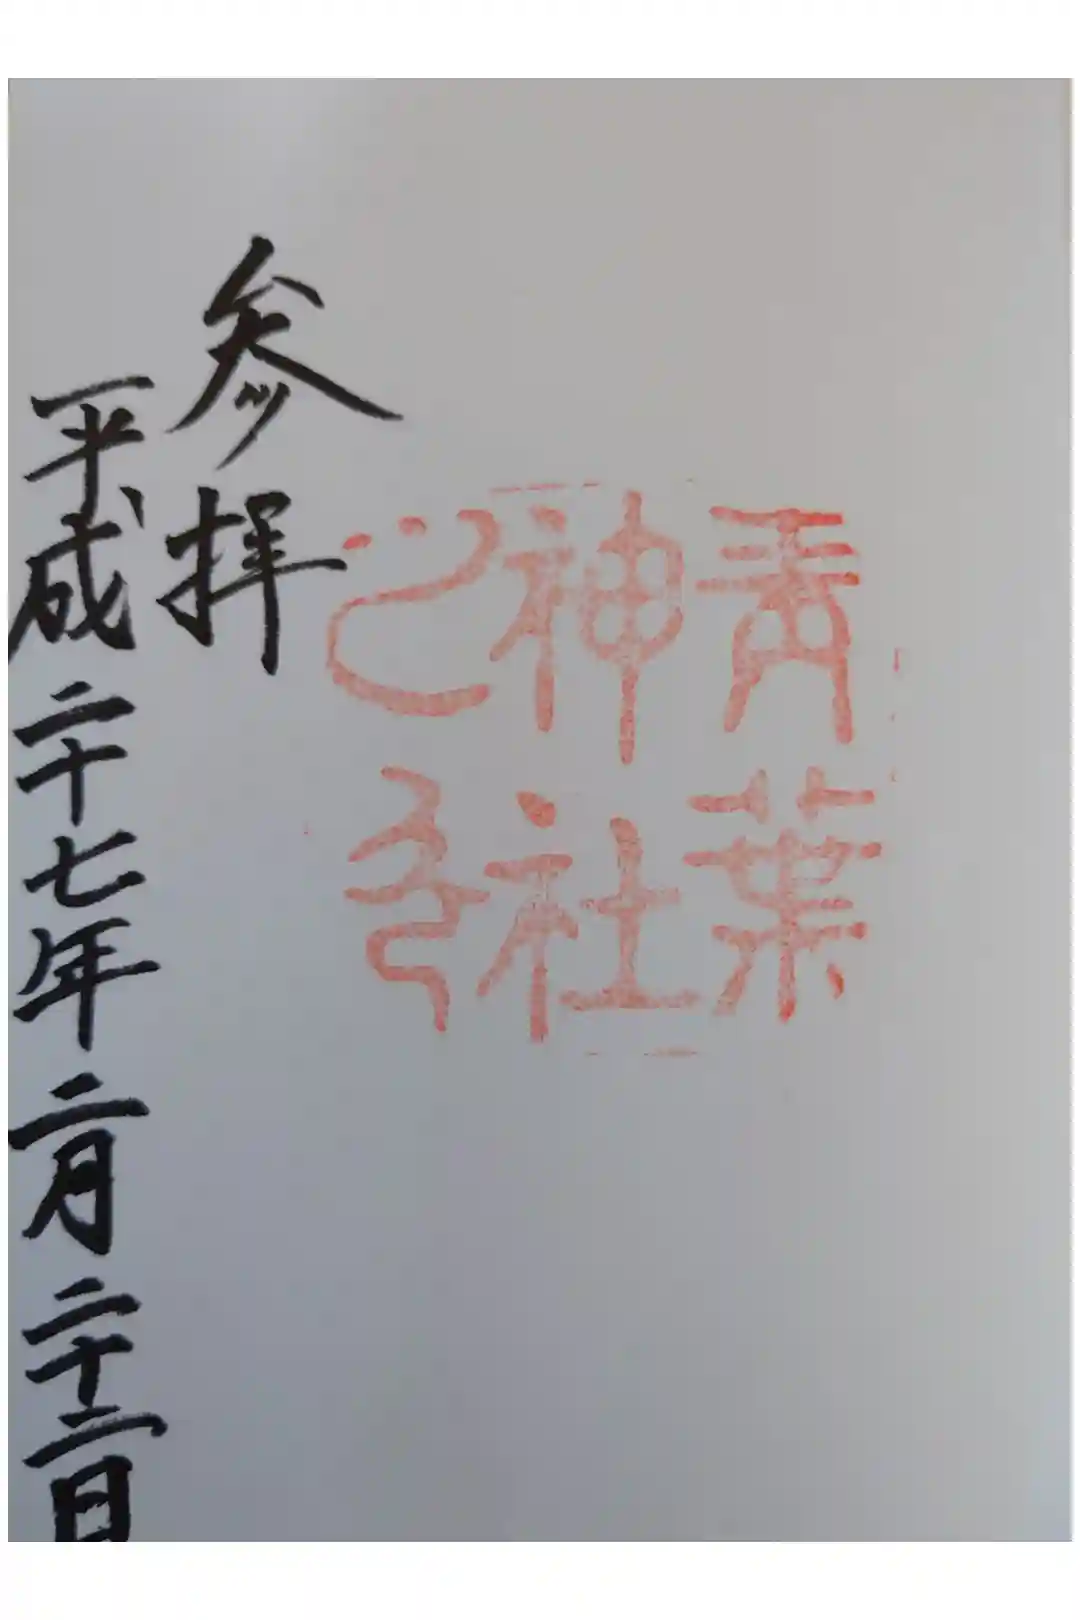 青葉
神社
之印
参拝
平成二十七年二月二十二日